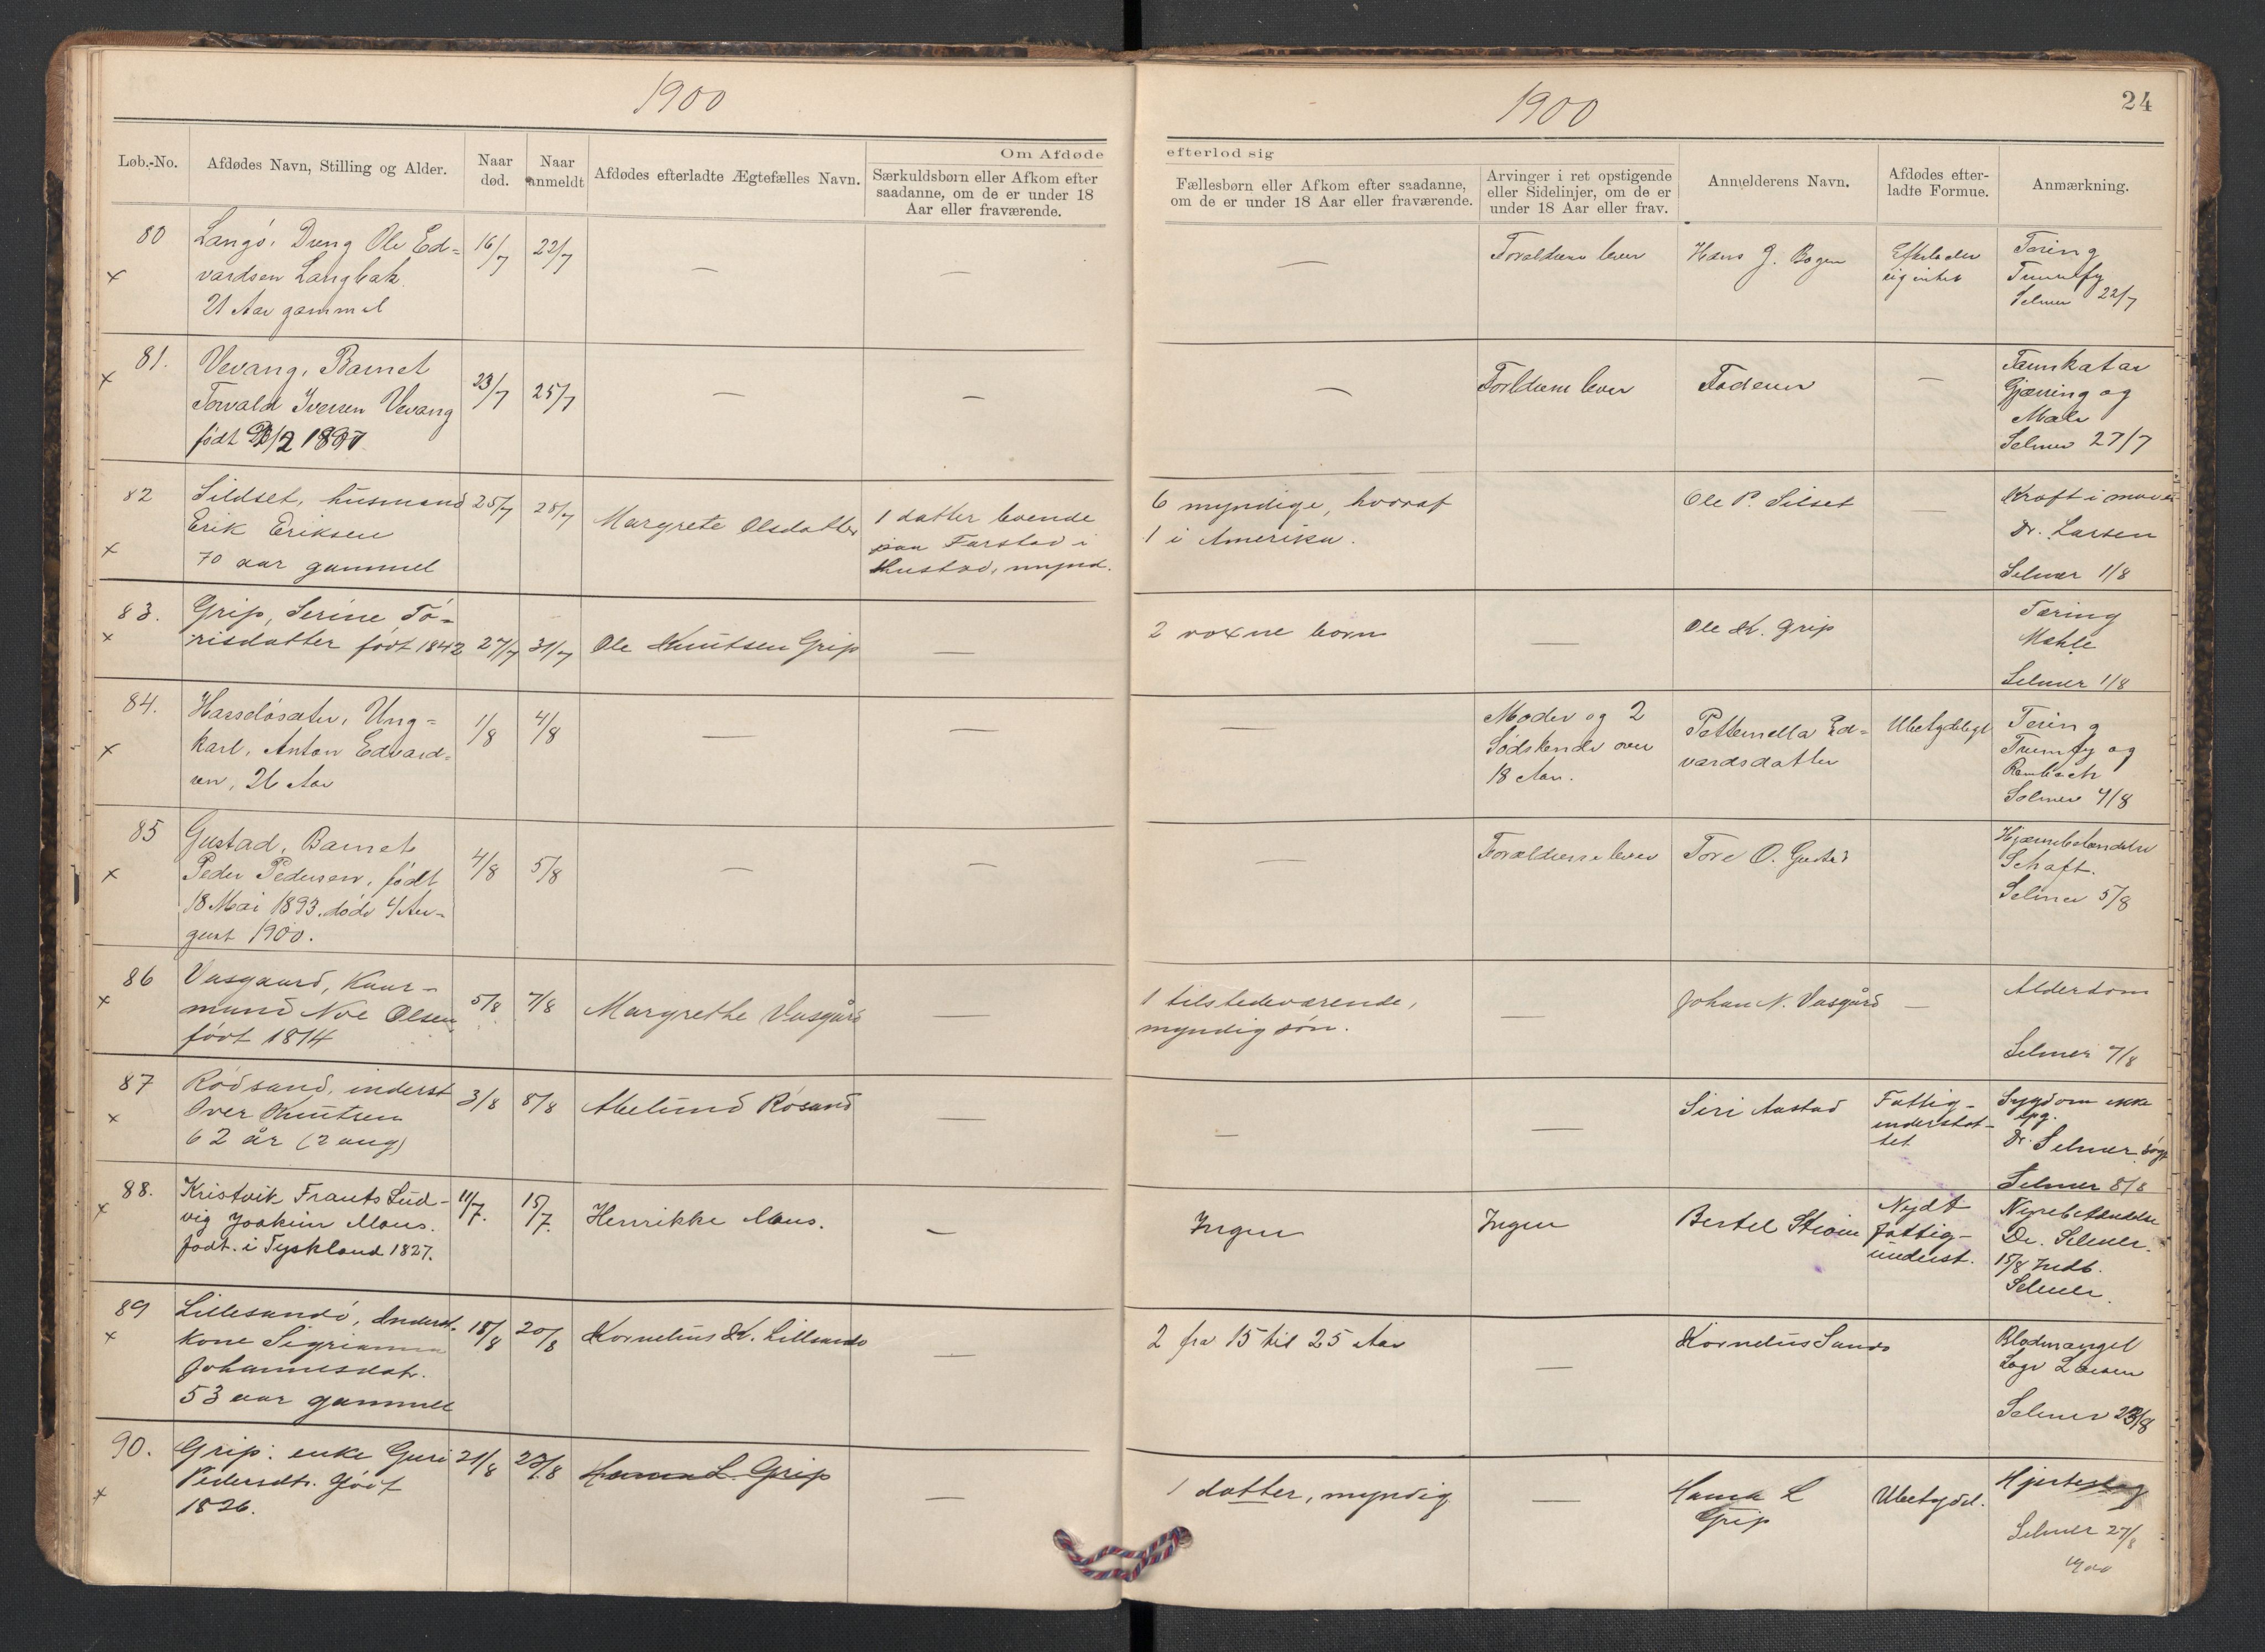 1900
Løb.-No.
Afdødes Navn, Stilling og Alder.
Naar
død.
Naar
anmeldt
Afdødes efterladte Ægtefælles Navn.
Om Afdøde
Særkuldsbørn eller Afkom efter
saadanne, om de er under 18
Aar eller fraværende.
1900
24
efterlod sig
Fællesbørn eller Afkom efter saadanne,
om de er under 18 Aar eller fraværende.
Arvinger i ret opstigende
eller Sidelinjer, om de er
under 18 Aar eller frav.
Anmelderens Navn.
Afdødes efter-
ladte Formue.
Anmærkning.
80
x
Langö, Dreng Ole Ed=
vardsen Langbak.
21 Aar gammel
16/7
22/7
—
—
—
Forældrene lever
Hans J. Bogen
Efterlader
sig intet
Tæring
Selmer 22/7
81.
x
Vevang, Barnet
Torvald Iversen Vevang
født /2 1897
23/7
25/7
—
—
—
Forldrene lever
Faderen
—
Tarmkatar
Gjørring og
Male
Selmer 27/7
82
x
Sildset, husmand
Erik Eriksen
70 aar gammel
25/7
28/7
Margrete Olsdatter
1 datter boende
paa Farstad i
Hustad, mynd.
6 myndige, hvoraf
1 i Amerika.
Ole P. Silset
—
Kræft i maven
Dr. Larsen
Selmer 1/8
83.
x
Grip, Serine Tö-
risdatter født 1842
27/7
31/7
Ole Knutsen Grip
—
2 voxne born
—
Ole K. Grip
Tæring
Mohle
Selmer 1/8
84.
x
Hasselösæter, Ung=
karl, Anton Edvard=
sen, 26 Aar
1/8
4/8
—
—
—
Moder og 2
Södskende over
18 Aar.
Petternella Ed=
vardsdatter
Ubetydeligt
Tæring
og
Rombach
Selmer 4/8
85
x
Gustad, Barnet
Peder Pedersen, født
18 Mai 1893. döde 4 Au-
gust 1900.
4/8
5/8
—
—
—
Forældrene lever
Tore O. Gustad
Hjærnebetændelse
Schaft.
Selmer 5/8
86
x
Vasgaard, Kaar-
mand Noe Olsen
født 1814
5/8
7/8
Margrethe Vasgård
—
1 tilstedeværende,
myndig søn.
—
Johan N. Vasgård
—
Alderdom
Selmer 7/8
87
x
Rödsand, inderst
Iver Knutsen
62 år (2 aug)
3/8
8/8
Abelund Rösand
—
—
—
Siri Aastad
Fattig-
understøt-
tet
Sygdom ikke
opg.
Dr. Selmer søgt
Selmer 8/8
88.
x
Kristvik Frants Lud-
vig Joakim Maus.
født i Tyskland 1827.
11/7.
15/7.
Henrikke Maus.
—
Ingen
Ingen
Bertel Stein
Nydt
fattig-
underst.
Nyrebetændelse
Dr. Selmer.
15/8 Indb.
Selmer.
89
x
Lillesandö, Inderst-
kone Sigrianna
Johannesdatr.
53 aar gammel
18/8
20/8
Kornelius K. Lillsandö
—
2 fra 15 til 25 Aar
—
Kornelius Sandö
Blodmangel
Læge Larsen
Selmer 23/8
90.
x
Grip: enke Guri
Pedersdtr. født
1826.
21/8
25/8
Hanna L. Grip
—
1 datter, myndig
—
Hanna L
Grip
Ubetydel.
Hjerteslag
Selmer 27/8
1900